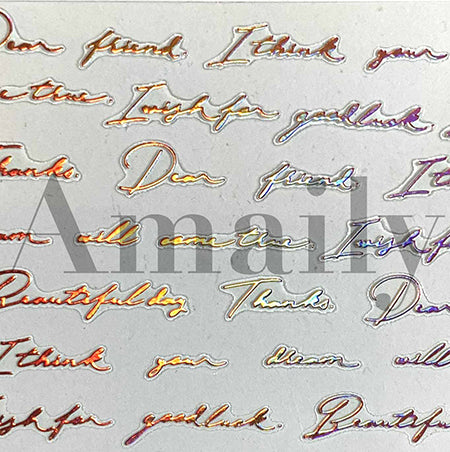 Dear friend. I think your
come true. I wish for good luck.
Thanks. Dear friend. I th
Amaily
dream will come true. I wish f
Beautiful day Thanks. Dear
I think your dream will
wish for good luck. Beautifu